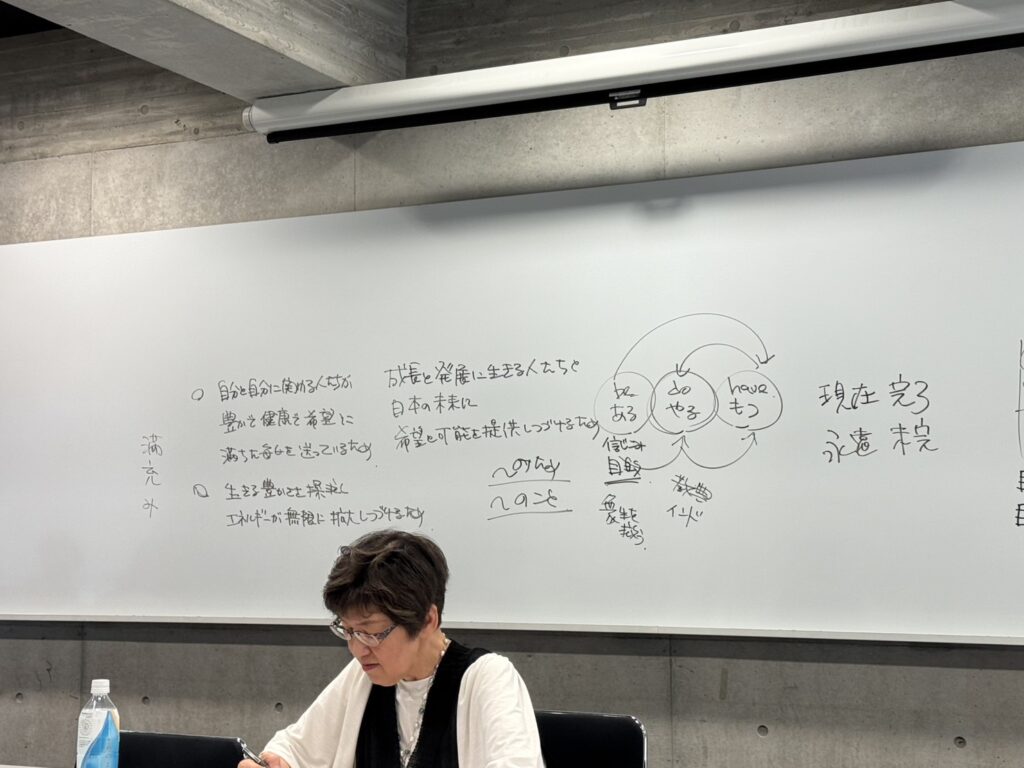 自分と自分に関わる人たちが
豊かさ健康さ希望に
満ちた毎日を送っているため
生きる豊かさを探求し
エネルギーが無限に拡大しつづけるため
満
充
成長と発展に生きる人たちと
日本の未来に
希望と可能を提供しつづけるため
〜のため
〜のこと
be
ある
do
やる
have
もつ
自
現在 完了
永遠 未完